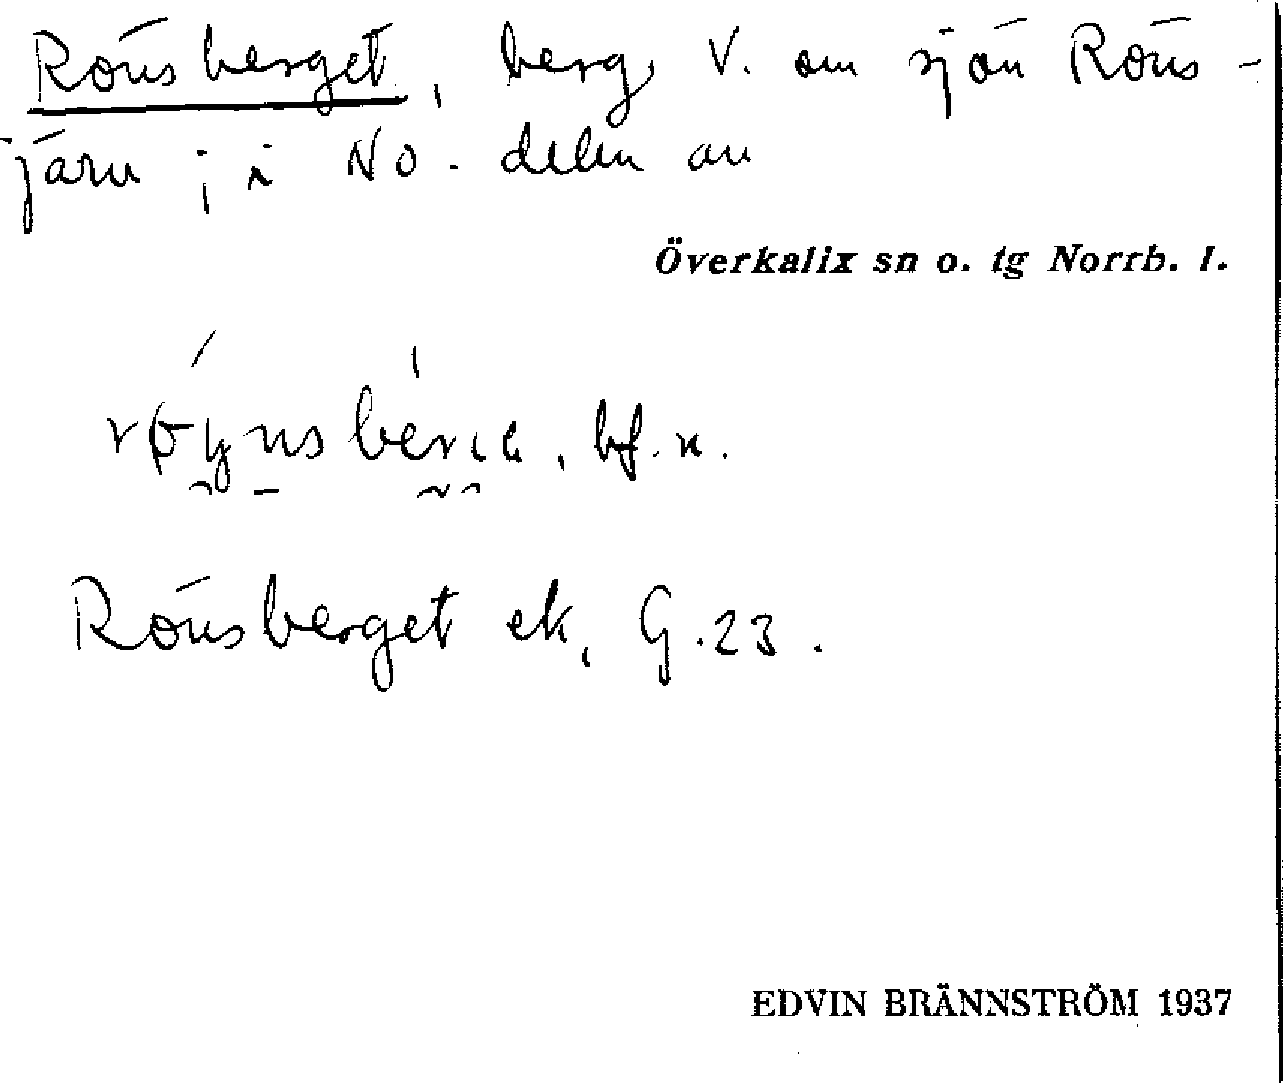 Rönsberget, berg, V. om sjön Röns-
tjärn; i NO-delen av
Överkalix sn o. tg Norrb. l.
bf. n.
Rönsberget ek, G. 23.
EDVIN BRÄNNSTRÖM 1937